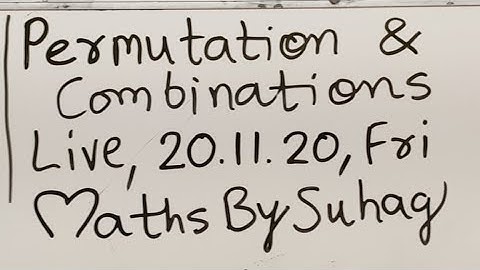 Permutation &
Combinations
Live, 20.11.20, Fri
Maths By Suhag